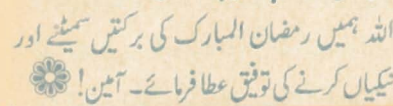 اللہ ہمیں رمضان المبارک کی برکتیں سمیٹنے اور
نیکیاں کرنے کی توفیق عطا فرمائے۔ آمین!